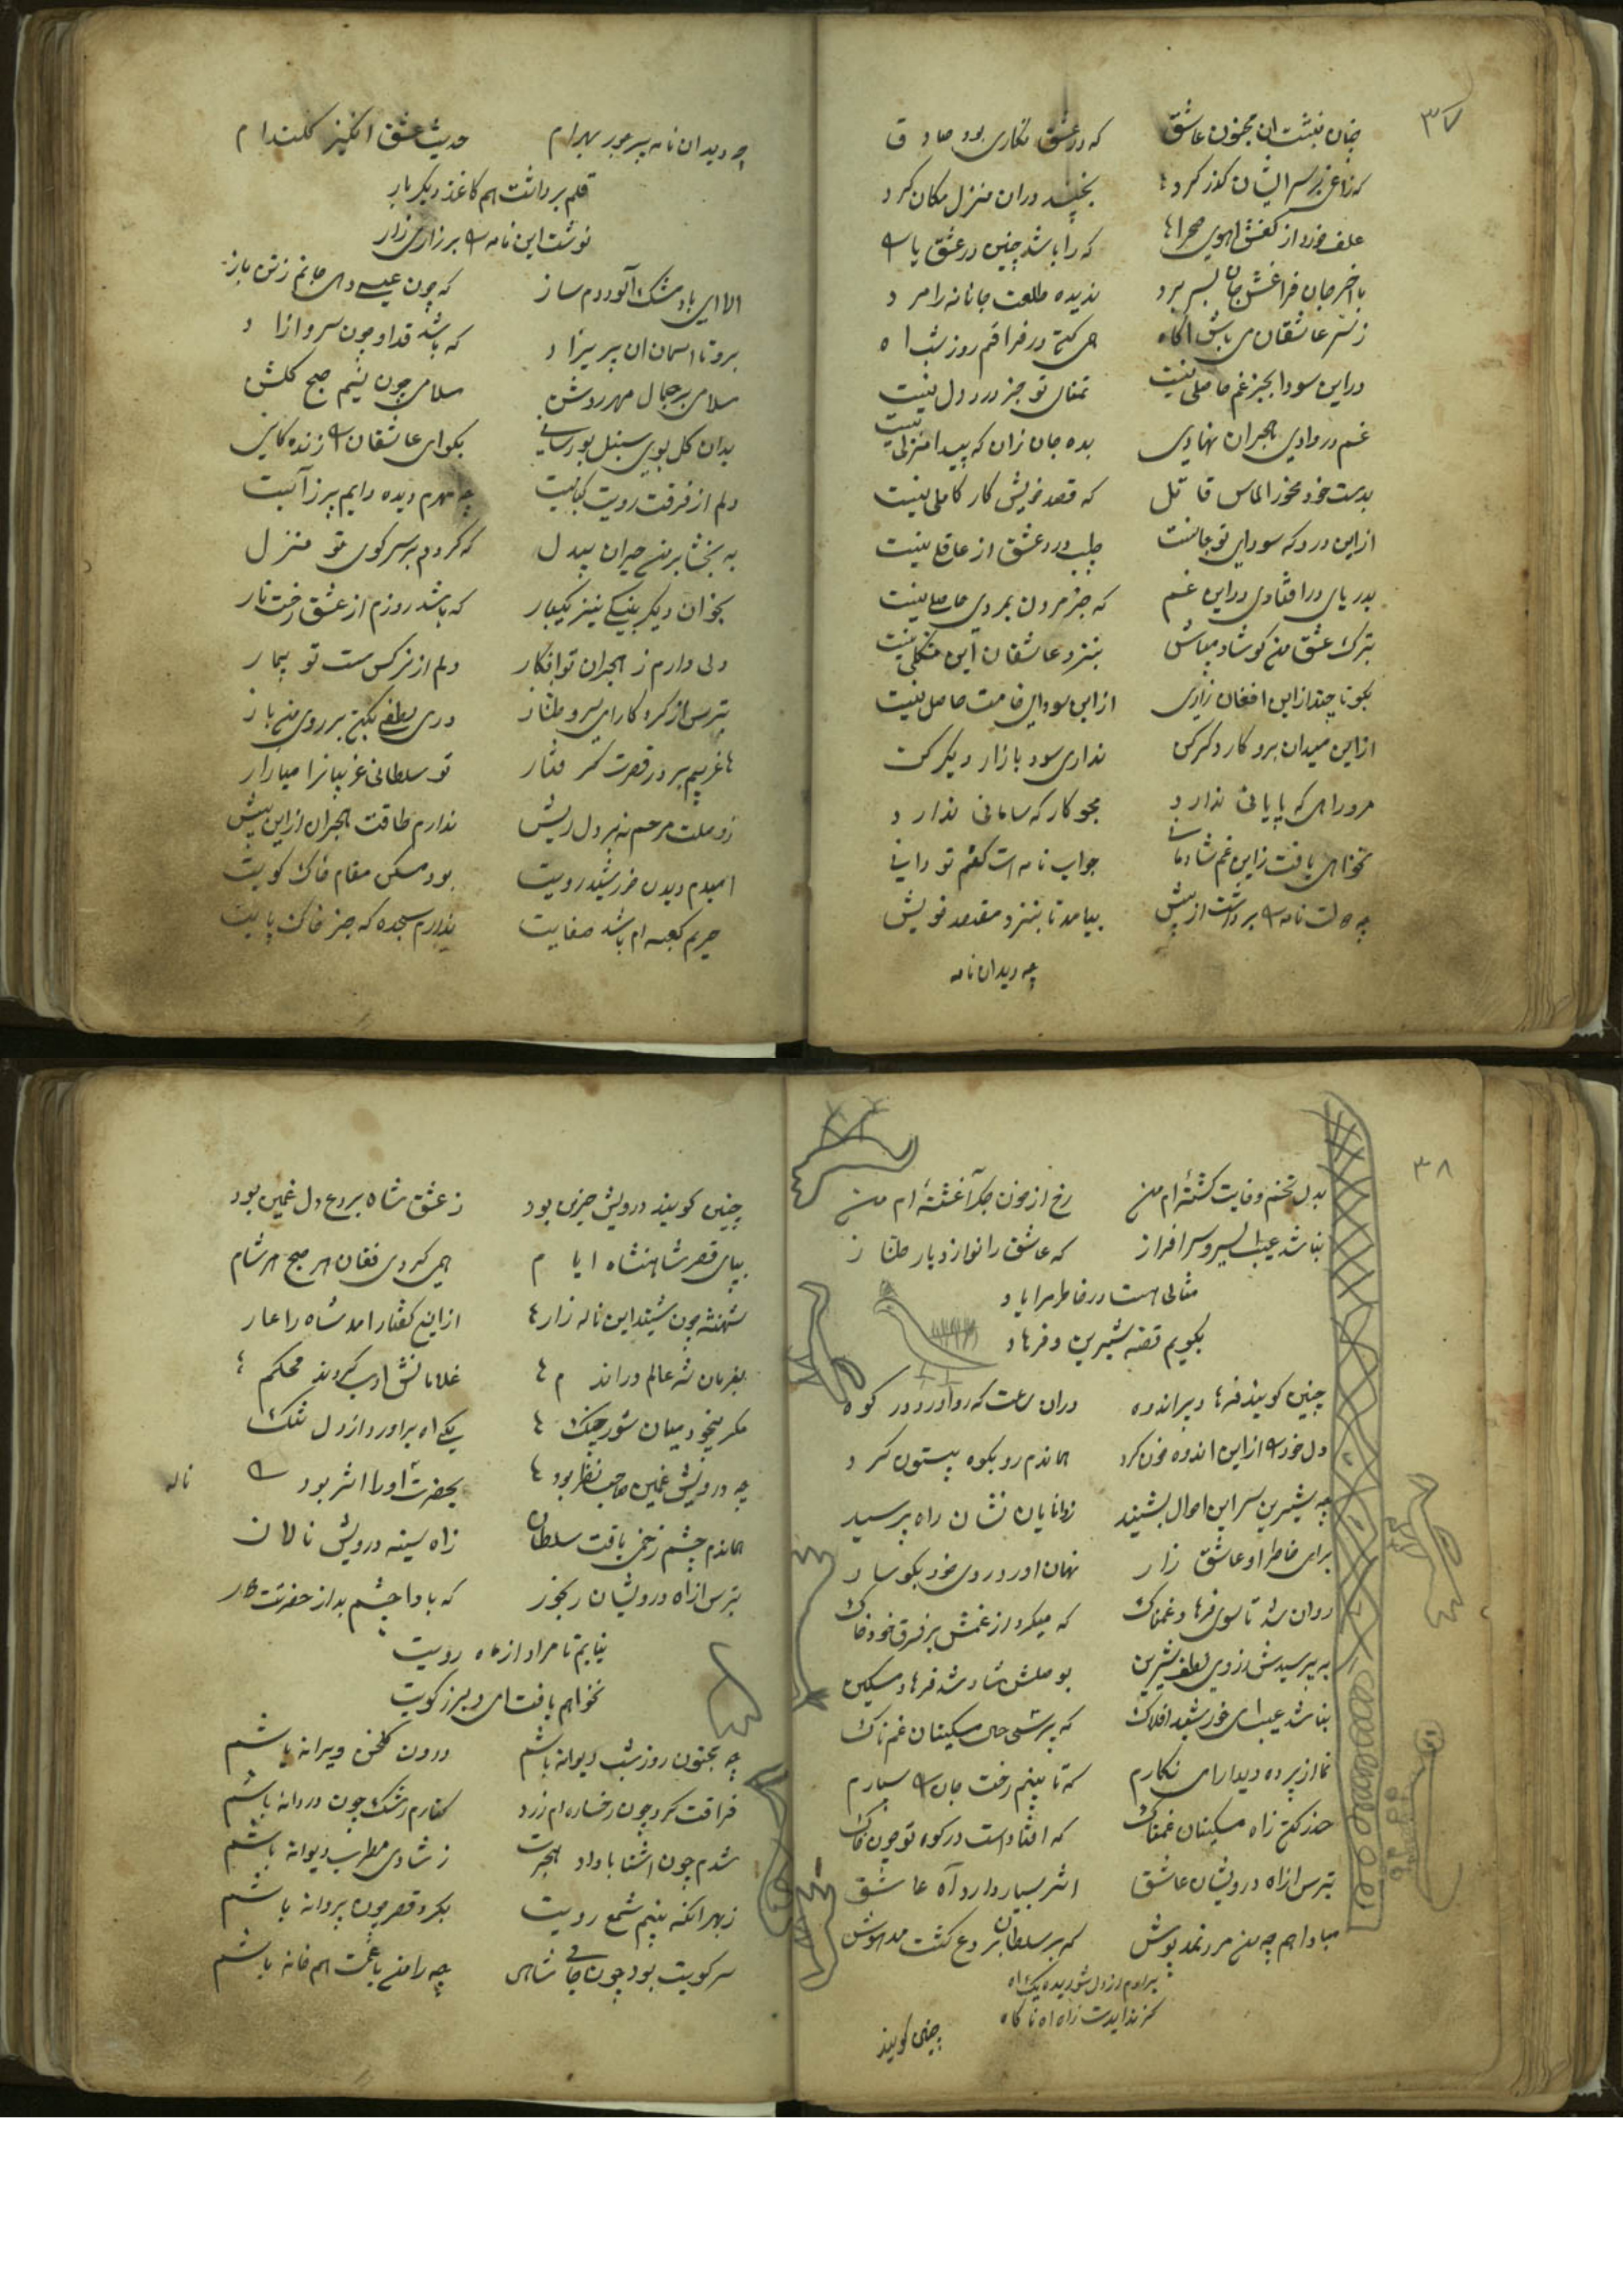 ۳۷
چنان بنشت ان مجنون عاشق که در عشق نکاری بود صادق
که زاغی بر سر ایشان کذر کرد بخنید دران منزل مکان کرد
علف خورد از کفش اهوی صحرا که را باشد چنین در عشق یا را
باخر جان فراغش جان بسر برد ندیده طلعت جانانه را مرد
ز سر عاشقان می باش اکاه همی کتی در فراقم روز شب اه
در این سودا بجز غم حاصلی نیست تمنای تو جز درد دل نیست
غم در وادی هجران نهادی بده جان زان که پیدا منزلی نیست
بدست خود مخور الماس قاتل که قصد خویش کار کاملی نیست
از این درد که سودای تو جانست طلب درد عشق از عاقلی نیست
بدریای در افتادی در این غم که جز مردن بمردی حاصلی نیست
بترک عشق من کو شاد میباش بنزد عاشقان این مشکلی نیست
بکو تا چند از این افغان زاری از این سودای خامت حاصل نیست
از این میدان برو کار دکر کن نداری سود بازار دیکر کن
مرو راهی که پایانی ندارد مجو کار که سامانی ندارد
نخواهی یافت زاین غم شادمانی جواب نامه است کفتم تو دانی
چه دلت نامه را برداشت از پیش بیامد تا بنزد مقصد خویش
چه دید ان نامه
چه دید ان نامه پر جور بهرام حدیث عشق انکیز کلندام
قلم برداشت هم کاغذ دیکر بار
نوشت این نامه را بر زاری زار
الا ای باد مشک آلود دم ساز که چون عیسی دهی جانم ز تن باز
برو تا اسمان ان پریزاد که باشد قد او چون سرو ازاد
سلامی بر جمال مهر روشن سلامی چون نسیم صبح کلشن
بدان کل بوی سنبل بو رسانی بکو ای عاشقان را زنده کانی
دلم از فرقت رویت کبابیت چه مهرم دیده دایم پر ز آبیت
به بخشا بر من حیران بیدل که کردم بر سر کوی تو منزل
بخوان دیکر بینکی نیز یکبار که باشد روزم از عشق رخت تار
دلی دارم ز هجران تو افکار دلم از نرکس مست تو بیمار
بترس از کرد کار ای سرو طناز دری لطفی بکن بر روی من باز
غریبم بر در قصرت کرفتار تو سلطانی غریبانرا میازار
ز وصلت مرحم نه بر دل ریش ندارم طاقت هجران از این بیش
امیدم دیدن خورشید رویت بود مسکن مقام خاک کویت
حریم کعبه ام باشد صفایت ندارم سجده که جز خاک پایت
۳۸
بدل تخم وفایت کشته ام من رخ از خون جکر آغشته ام من
نباشد عیب ای سرو سرافراز که عاشق را نوازد یار طناز
مثالی هست در خاطر مرا یاد
بکویم قصه شیرین و فرهاد
چنین کویند فرهاد پر اندوه دران ساعت که رو اورد در کوه
دل خود را از این اندوه خون کرد هماندم رو بکوه بیستون کرد
چه شیرین سر این احوال بشنید ز دانایان نشان راه پرسید
برای خاطر او عاشق زار نهان اورد روی خود بکوسار
روان شد تا سوی فرهاد غمناک که میکرد از غمش بر فرق خود خاک
به پرسیدش ز روی لطف شیرین بوصلش شاد شد فرهاد مسکین
نباشد عیب ای خورشید افلاک که پرسی حال مسکینان غمناک
نما از پرده دیدار ای نکارم که تا بینم رخت جان را سپارم
حذر کن زاه مسکینان غمناک که افتاد است در کوه تو چون خاک
بترس از اه درویشان عاشق اثر بسیار دارد آه عاشق
مبادا هم چه من مرد نمد پوش که بر سلطان بردع کشت مدهوش
برارم از دل شوریده یک اه
کزندایدت زاه اه ناکاه
چنین کویند
چنین کویند درویش حزین بود ز عشق شاه بردع دل غمین بود
بپای قصر شاهنشاه ایام همی کردی فغان هر صبح هر شام
شهنشه چون شنید این ناله زار از این کفتار امد شاه را عار
بفرمان شه عالم در اندم غلامانش ادب کردند محکم
مکر بیخود میان شور چنک یکی اه براورد از دل تنک
چه درویش غمین صاحب نظر بود بحضرت آه او را اثر بود
ناله
هماندم چشم زخمی یافت سلطان زاه سینه درویش نالان
بترس از اه درویشان رنجور که بادا چشم بد از حضرتت دور
نیابم تا مراد از ماه رویت
نخواهم یافت ای دلبر ز کویت
چه مجنون روز شب دیوانه باشم درون کلخن ویرانه باشم
فراقت کرد چون رخساره ام زرد کنارم ز اشک چون دردانه باشم
شدم چون اشنا با داد هجرت ز شادی مطرب دیوانه باشم
ز بهر انکه بینم شمع رویت بکرد قصر چون پروانه باشم
سر کویت بود چون جای شاهی چه را من با غمت هم خانه باشم